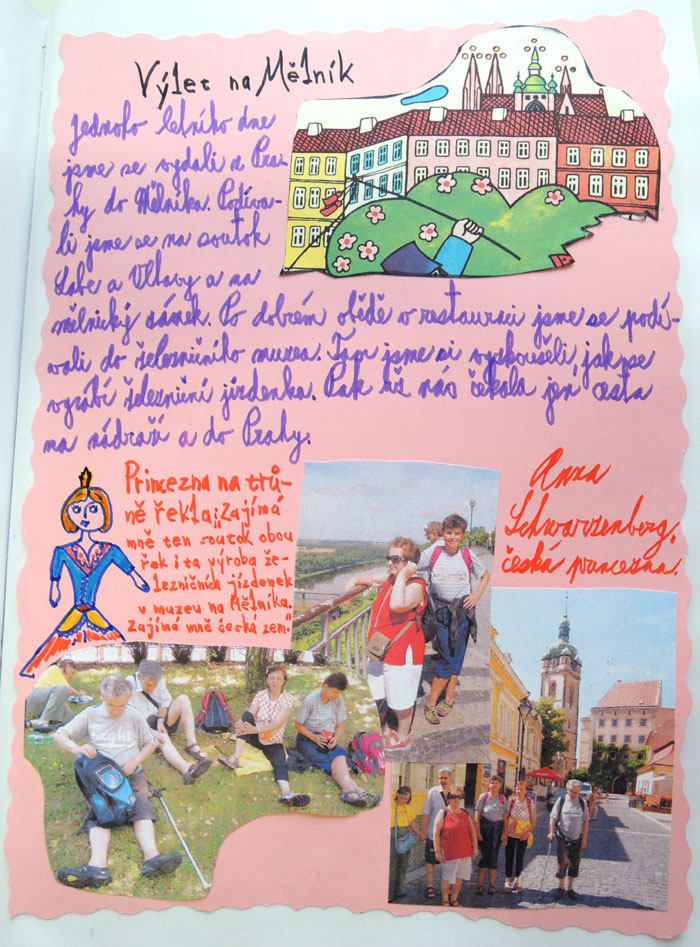 Výlet na Mělník
Jednoho letního dne
jsme se vydali z Pra-
hy do Mělníka. Podíva-
li jsme se na soutok
Labe a Vltavy a na
mělnický zámek. Po dobrém obědě v restauraci jsme se podí-
vali do železničního muzea. Tam jsme si vyzkoušeli, jak se
vyrábí železniční jízdenka. Pak už nás čekala jen cesta
na nádraží a do Prahy.
Princezna na trů-
ně řekla: „Zajímá
mně ten soutok obou
řek i ta výroba že-
lezničních jízdenek
v muzeu na Mělníka.
Zajímá mně česká zem."
Anna
Schwarzenberg,
česká princezna.
Bright